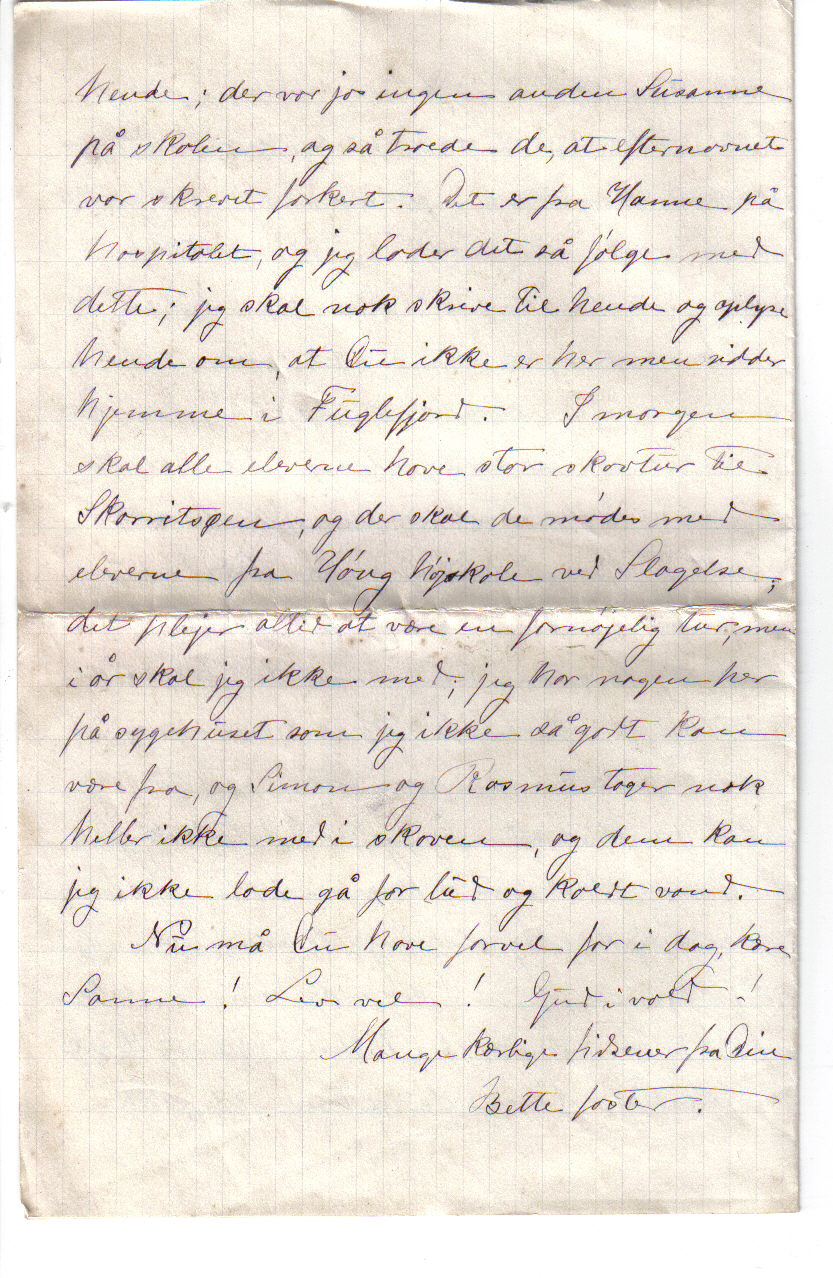 hende; der var jo ingen anden Susanne
på skolen, og så troede de, at efternavnet
var skrevet forkert. Det er fra Hanne på
hospitalet, og jeg lader det så følge med
dette; jeg skal nok skrive til hende og oplyse
hende om, at Du ikke er her men sidder
hjemme i Fuglefjord. I morgen
skal alle eleverne have stor skovtur til
Skarritsøen, og der skal de mødes med
eleverne fra Høng højskole ved Slagelse;
det plejer altid at være en fornøjelig tur, men
i år skal jeg ikke med; jeg har nogen her
på sygehuset som jeg ikke så godt kan
være fra, og Simon og Rasmus tager nok
heller ikke med i skoven, og dem kan
jeg ikke lade gå for lud og koldt vand.
Nu må Du have farvel for i dag, kære
Sanne! Lev vel! Gud i vold!
Mange kærlige hilsener fra Din
Bette foster.